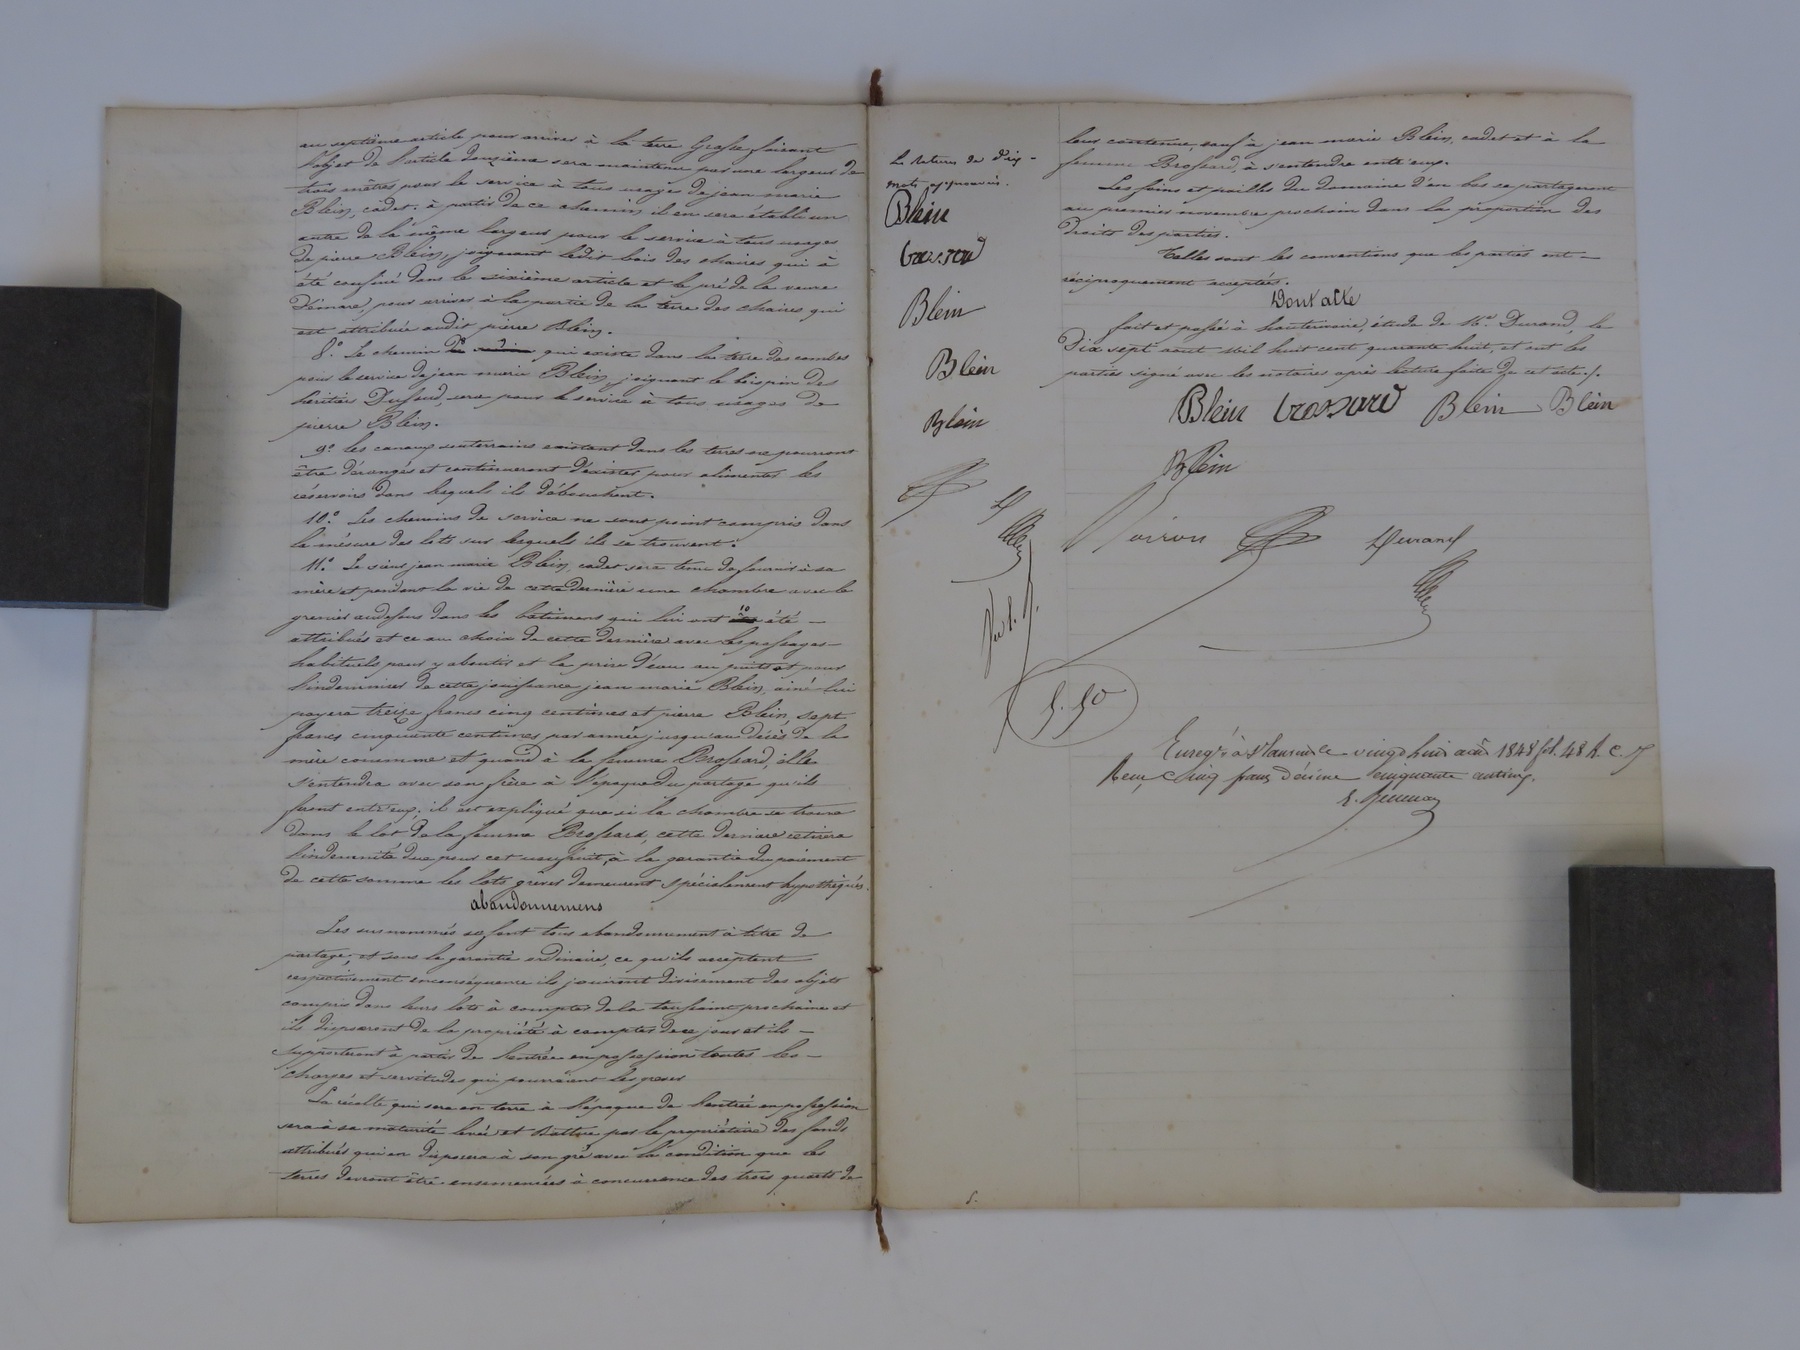 au septième article pour arriver à la terre Grosse faisant
l'objet de l'article douzième sera maintenu par une largeur de
trois mètres pour le service à tous usages de jean marie
Blein, cadet. à partir de ce chemin il en sera établi un
autre de la même largeur pour le service à tous usages
de pierre Blein, joignant ledit bois des chaires qui a
été confiné dans le sixième article et le pré de la veuve
pour arriver à la partie de la terre des chaires qui
est attribuée audit pierre Blein.
8.° Le chemin qui existe dans la terre des combes
pour le service de jean marie Blein, joignant le bois pin des
héritiers Dufaud, sera pour le service à tous usages de
pierre Blein.
9.° les canaux souterrains existant dans les terres ne pourront
être dérangés et continueront d'exister pour alimenter les
réservoirs dans lesquels ils débouchent.
10.° Les chemins de service ne sont point compris dans
la mésure des lots sur lesquels ils se trouvent.
11.° Le sieur jean marie Blein, cadet sera tenu de fournir à sa
mère et pendant la vie de cette dernière une chambre avec le
grenier audessus dans les bâtimens qui lui ont été
attribués et ce au choix de cette dernière avec les passages
habituels pour y aboutir et la prise d'eau au puits et pour
l'indemniser de cette jouissance jean marie Blein, ainé lui
payera treize francs cinq centimes et pierre Blein, sept
francs cinquante centimes par année jusqu'au décès de la
mère commune et quand à la femme Brossard, elle
s'entendra avec son frère à l'époque du partage qu'ils
feront entr'eux, il est expliqué que si la chambre se trouve
dans le lot de la femme Brossard, cette dernière retirera
l'indemnité due pour cet usufruit, à la garantie du paiement
de cette somme les lots grévés demeurent spécialement hypothéqués.
abandonnemens
Les susnommés se font tous abandonnement à titre de
partage, et sous la garantie ordinaire, ce qu'ils acceptent
respectivement enconséquence ils jouiront divisément des objets
compris dans leurs lots à compter de la toussaint prochaine et
ils disposeront de la propriété à compter de ce jour et ils
supporteront à partir de l'entrée en possession toutes les
charges et servitudes qui pourraient les grever
La récolte qui sera en terre à l'époque de l'entrée en possession
sera à sa maturité levée et battue par le propriétaire des fonds
attribués qui en disposera à son gré avec la condition que les
terres devront être ensemencées à concurrence des trois quarts de
La rature de dix
mots approuvée.
Blein
brossard
Blein
Blein
Blein
5.50
leur contenue, sauf à jean marie Blein, cadet et à la
femme Brossard, à s'entendre entr'eux.
Les foins et pailles du domaine d'en bas se partageront
au premier novembre prochain dans la proportion des
droits des parties.
Telles sont les conventions que les parties ont
réciproquement acceptées.
Dont acte
fait et passé à hauterivoire, étude de M.e Durand, le
Dix sept aout mil huit cent quarante huit, et ont les
parties signé avec les notaires après lecture faite de cet acte./.
Blein brossard Blein Blein
Blein
Voiron Durand
Enreg.é à St laurent le vingt huit août 1848 fol. 48 R. c. 7
Reçu Cinq francs décime cinquante centimes.